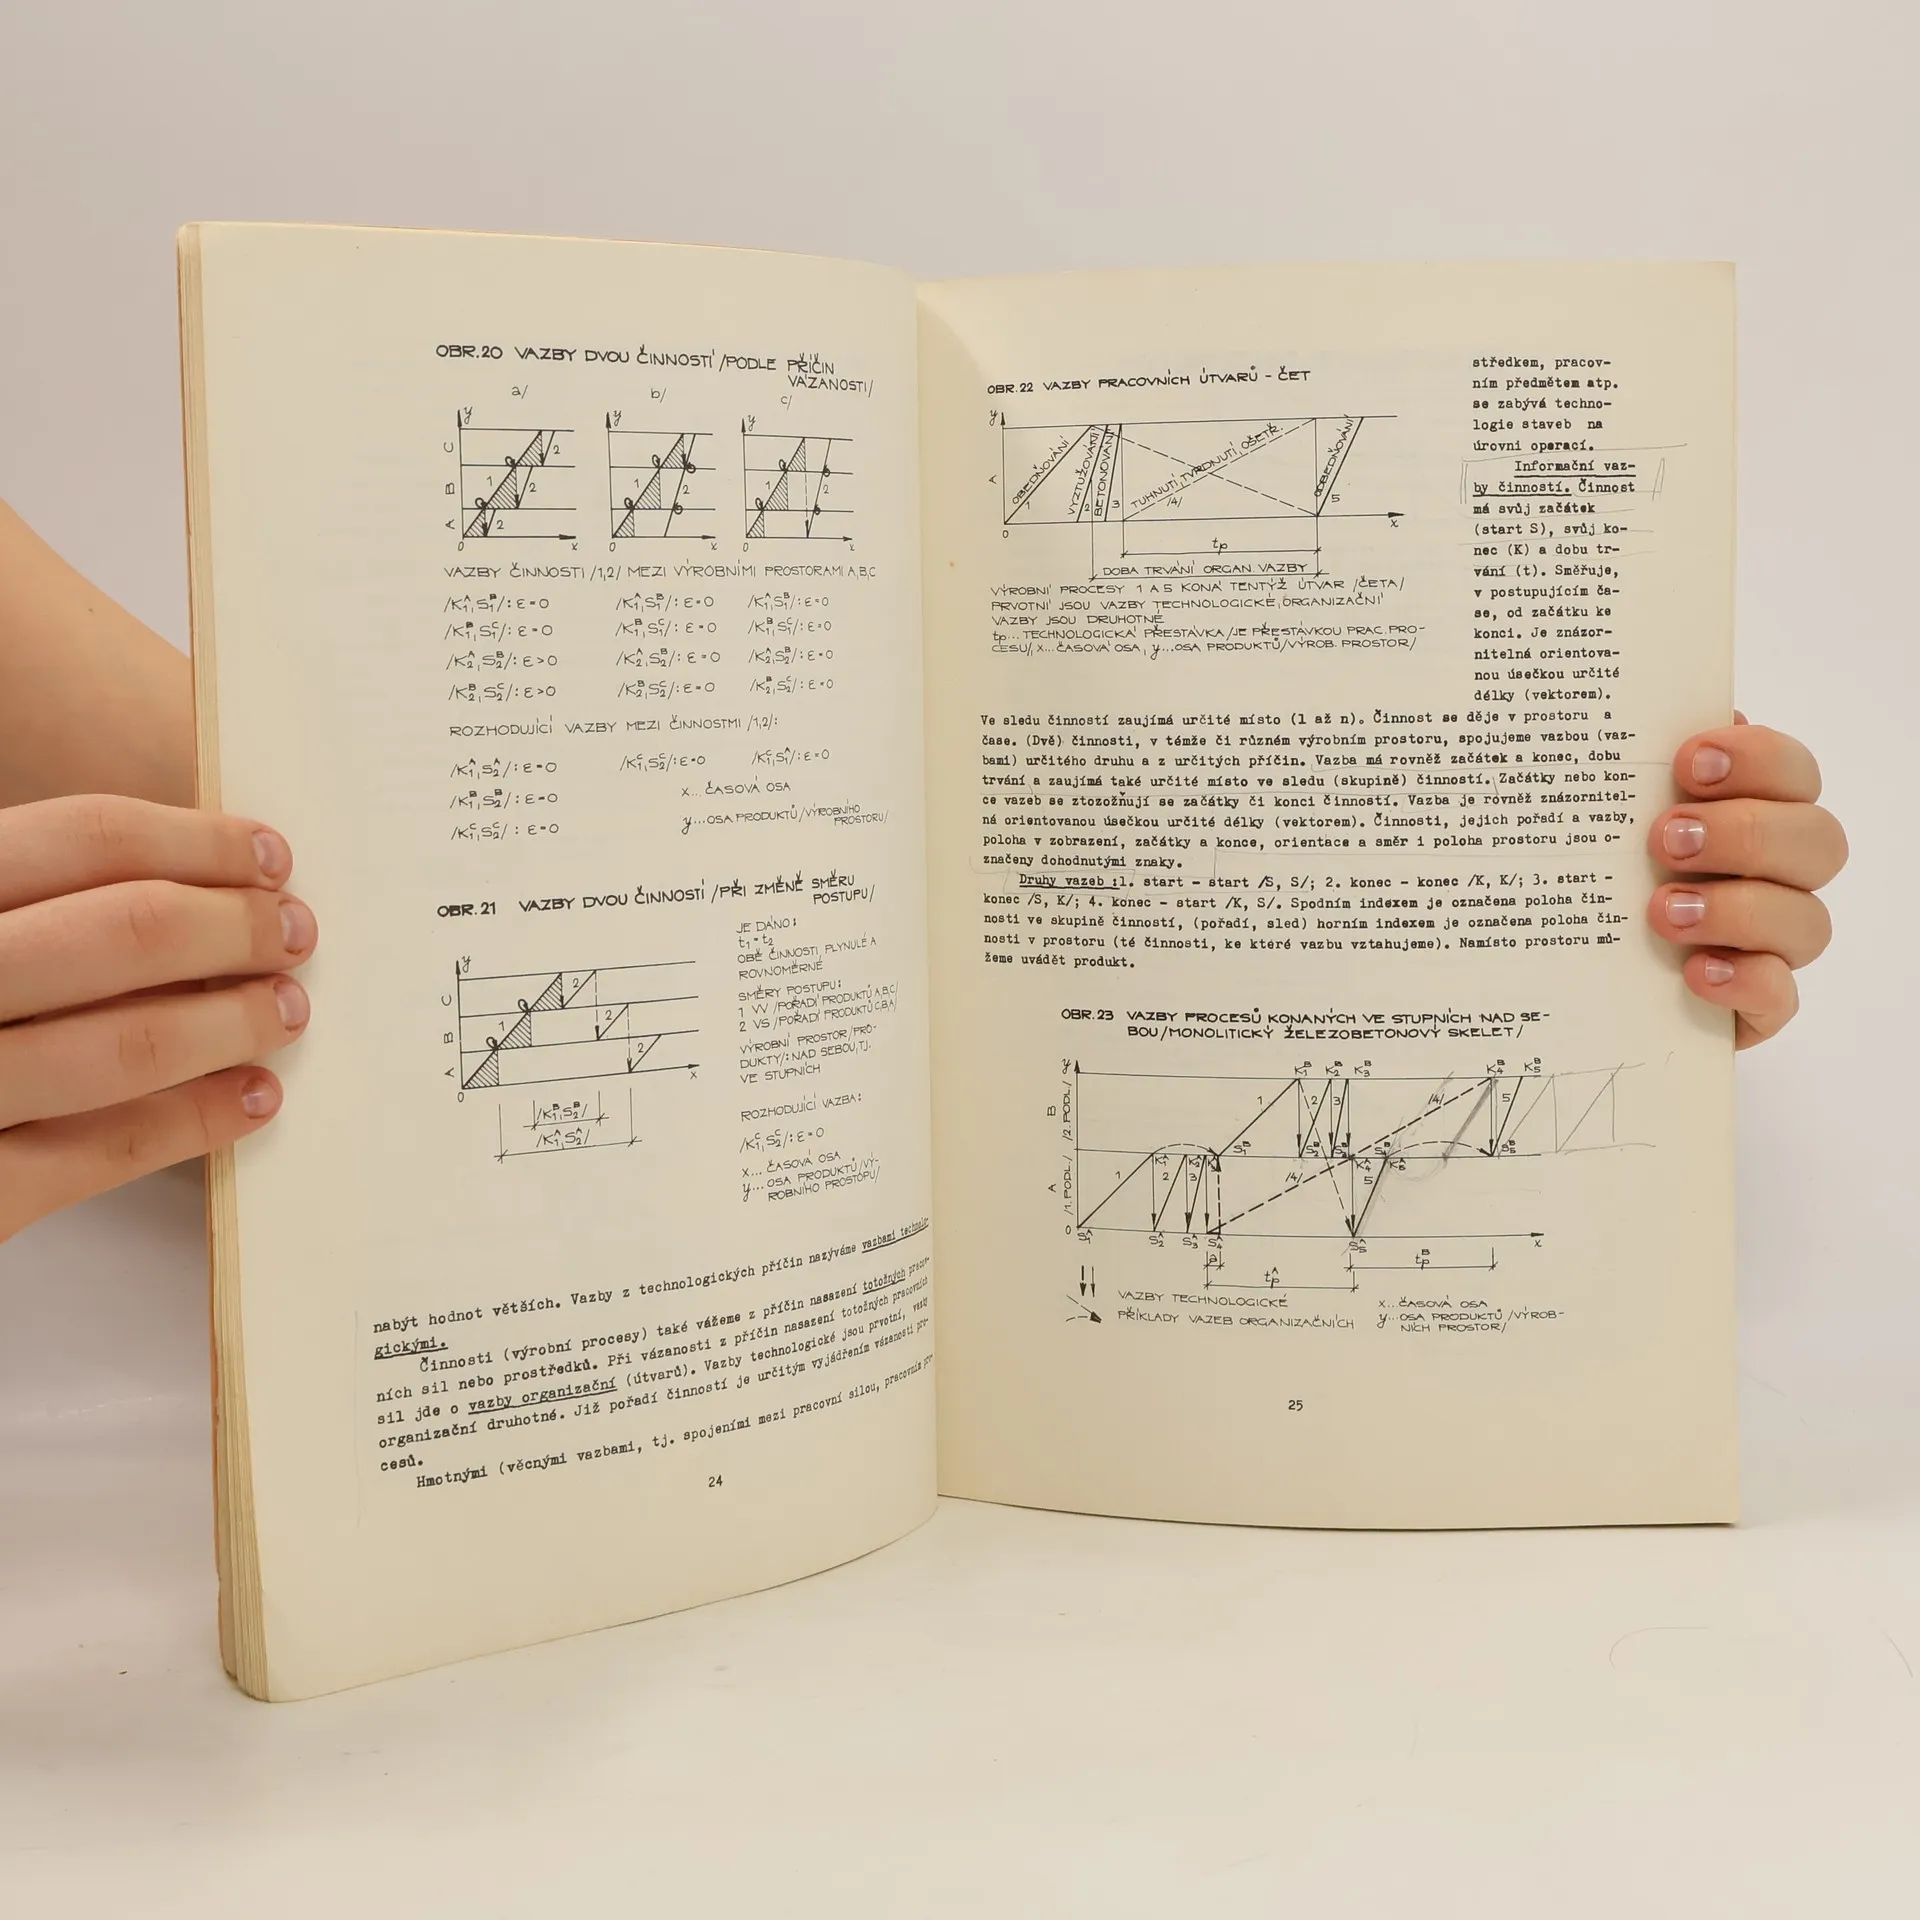 OBR.20 VAZBY DVOU ČINNOSTÍ /PODLE PŘÍČIN
VÁZANOSTI/
a/ b/ c/
y y y
C B A
1 2 2 2
1 2
1 2
0 x 0 x 0 x
VAZBY ČINNOSTI /1,2/ MEZI VÝROBNÍMI PROSTORAMI A,B,C
/K₁ᴬ,S₁ᴮ/: ε=0 /K₁ᴬ,S₁ᴮ/: ε=0 /K₁ᴬ,S₁ᴮ/: ε=0
/K₁ᴮ,S₁ᶜ/: ε=0 /K₁ᴮ,S₁ᶜ/: ε=0 /K₁ᴮ,S₁ᶜ/: ε=0
/K₂ᴬ,S₂ᴮ/: ε>0 /K₂ᴬ,S₂ᴮ/: ε=0 /K₂ᴬ,S₂ᴮ/: ε=0
/K₂ᴮ,S₂ᶜ/: ε>0 /K₂ᴮ,S₂ᶜ/: ε=0 /K₂ᴮ,S₂ᶜ/: ε=0
ROZHODUJÍCÍ VAZBY MEZI ČINNOSTMI /1,2/:
/K₁ᴬ,S₂ᴬ/: ε=0 /K₁ᶜ,S₂ᶜ/: ε=0
/K₁ᴮ,S₂ᴮ/: ε=0 x... ČASOVÁ OSA
/K₁ᶜ,S₂ᶜ/: ε=0 y...OSA PRODUKTŮ/VÝROBNÍHO
PROSTORU/
OBR.21 VAZBY DVOU ČINNOSTÍ /PŘI ZMĚNĚ SMĚRU
POSTUPU/
y
C B A
1 2 2 2
0 x
/K₁ᴮ,S₂ᴮ/
/K₁ᴬ,S₂ᴬ/
JE DÁNO:
t₁=t₂
OBĚ ČINNOSTI PLYNULÉ A
ROVNOMĚRNÉ
SMĚRY POSTUPU:
1 VV /POŘADÍ PRODUKTŮ A,B,C/
2 VS /POŘADÍ PRODUKTŮ C,B,A/
VÝROBNÍ PROSTOR /PRO-
DUKTY/: NAD SEBOU, TJ.
VE STUPNÍCH
ROZHODUJÍCÍ VAZBA:
/K₁ᶜ,S₂ᶜ/: ε=0
x... ČASOVÁ OSA
y... OSA PRODUKTŮ/VÝ-
ROBNÍHO PROSTORU/
nabýt hodnot větších. Vazby z technologických příčin nazýváme vazbami technolo-
gickými.
Činnosti (výrobní procesy) také vážeme z příčin nasazení totožných pracov-
ních sil nebo prostředků. Při vázanosti z příčin nasazení totožných pracovních
sil jde o vazby organizační (útvarů). Vazby technologické jsou prvotní, vazby
organizační druhotné. Již pořadí činností je určitým vyjádřením vázanosti pro-
cesů.
Hmotnými (věcnými vazbami, tj. spojeními mezi pracovní silou, pracovním pro-
24
OBR.22 VAZBY PRACOVNÍCH ÚTVARŮ - ČET
y
A
OBEDŇOVÁNÍ
VYZTUŽOVÁNÍ
BETONOVÁNÍ
TUHNUTÍ, TVRDNUTÍ, OŠETŘ.
ODBEDŇOVÁNÍ
1 2 3 /4/ 5
0 x
tp
DOBA TRVÁNÍ ORGAN. VAZBY
VÝROBNÍ PROCESY 1 A 5 KONÁ TENTÝŽ ÚTVAR /ČETA/
PRVOTNÍ JSOU VAZBY TECHNOLOGICKÉ, ORGANIZAČNÍ
VAZBY JSOU DRUHOTNÉ
tp... TECHNOLOGICKÁ PŘESTÁVKA /JE PŘESTÁVKOU PRAC. PRO-
CESU/, x...ČASOVÁ OSA, y...OSA PRODUKTŮ/VÝROB. PROSTOR/
středkem, pracov-
ním předmětem atp.
se zabývá techno-
logie staveb na
úrovni operací.
Informační vaz-
by činností. Činnost
má svůj začátek
(start S), svůj ko-
nec (K) a dobu tr-
vání (t). Směřuje,
v postupujícím ča-
se, od začátku ke
konci. Je znázor-
nitelná orientova-
nou úsečkou určité
délky (vektorem).
Ve sledu činností zaujímá určité místo (1 až n). Činnost se děje v prostoru a
čase. (Dvě) činnosti, v témže či různém výrobním prostoru, spojujeme vazbou (vaz-
bami) určitého druhu a z určitých příčin. Vazba má rovněž začátek a konec, dobu
trvání a zaujímá také určité místo ve sledu (skupině) činností. Začátky nebo kon-
ce vazeb se ztozožňují se začátky či konci činností. Vazba je rovněž znázornitel-
ná orientovanou úsečkou určité délky (vektorem). Činnosti, jejich pořadí a vazby,
poloha v zobrazení, začátky a konce, orientace a směr i poloha prostoru jsou o-
značeny dohodnutými znaky.
Druhy vazeb :1. start - start /S, S/; 2. konec - konec /K, K/; 3. start -
konec /S, K/; 4. konec - start /K, S/. Spodním indexem je označena poloha čin-
nosti ve skupině činností, (pořadí, sled) horním indexem je označena poloha čin-
nosti v prostoru (té činnosti, ke které vazbu vztahujeme). Namísto prostoru mů-
žeme uvádět produkt.
OBR.23 VAZBY PROCESŮ KONANÝCH VE STUPNÍCH NAD SE-
BOU/MONOLITICKÝ ŽELEZOBETONOVÝ SKELET/
y K₁ᴮ K₂ᴮ K₃ᴮ K₄ᴮ K₅ᴮ
B /2.PODL./
1 2 3 /4/ 5
S₁ᴮ S₂ᴮ S₅ᴮ
A /1.PODL./
1 K₁ᴬ 2 K₂ᴬ 3 /4/ K₄ᴬ 5 K₅ᴬ
0 S₁ᴬ S₂ᴬ S₃ᴬ S₄ᴬ S₅ᴬ x
tpᴬ tpᴮ
VAZBY TECHNOLOGICKÉ
PŘÍKLADY VAZEB ORGANIZAČNÍCH
x...ČASOVÁ OSA
y...OSA PRODUKTŮ /VÝROB-
NÍCH PROSTOR/
25